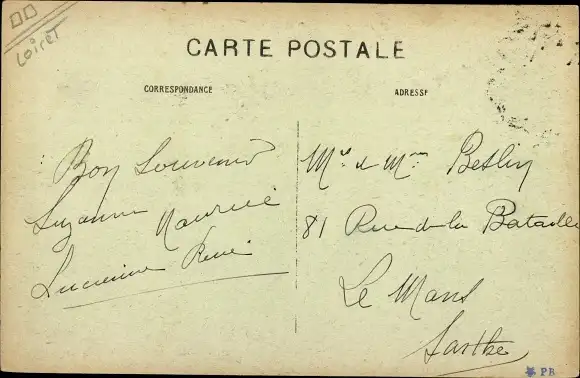 Loiret
CARTE POSTALE
CORRESPONDANCE
ADRESSE
Bon Souvenir
Suzanne Maurice
Lucienne René
Mr & Mme Beslin
81 Rue de la Bataille
Le Mans
Sarthe
PB